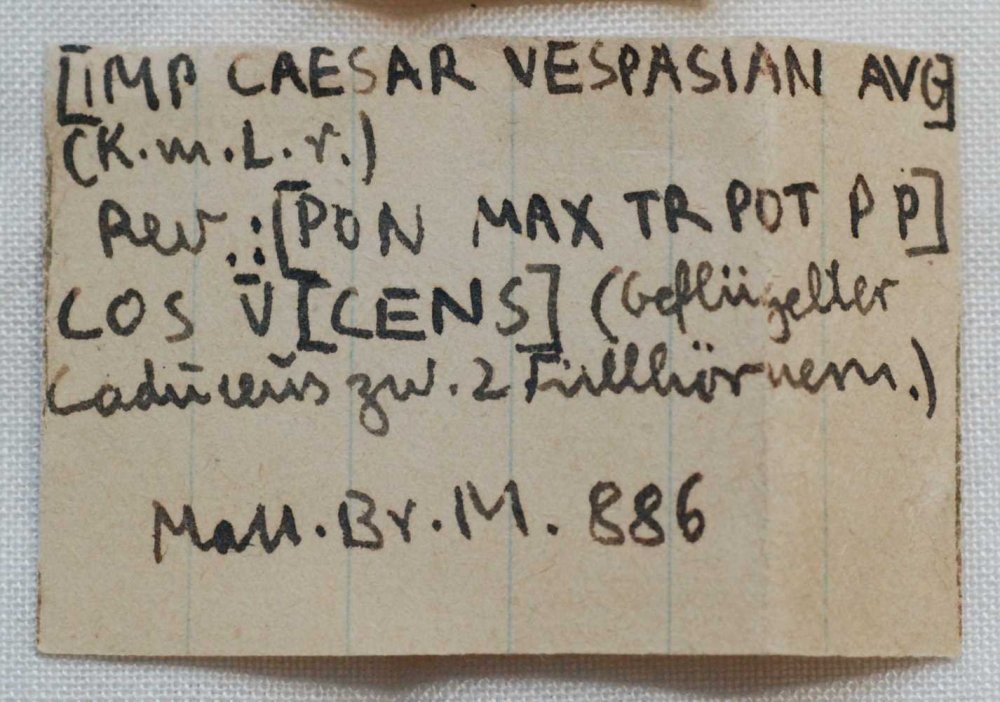 [IMP CAESAR VESPASIAN AVG]
(K.m.L.r.)
Rev.:[PON MAX TR POT P P]
COS V̄ [CENS] (Geflügelter
Caduceus zw. 2 Füllhörnern.)
Matt. Br. M. 886